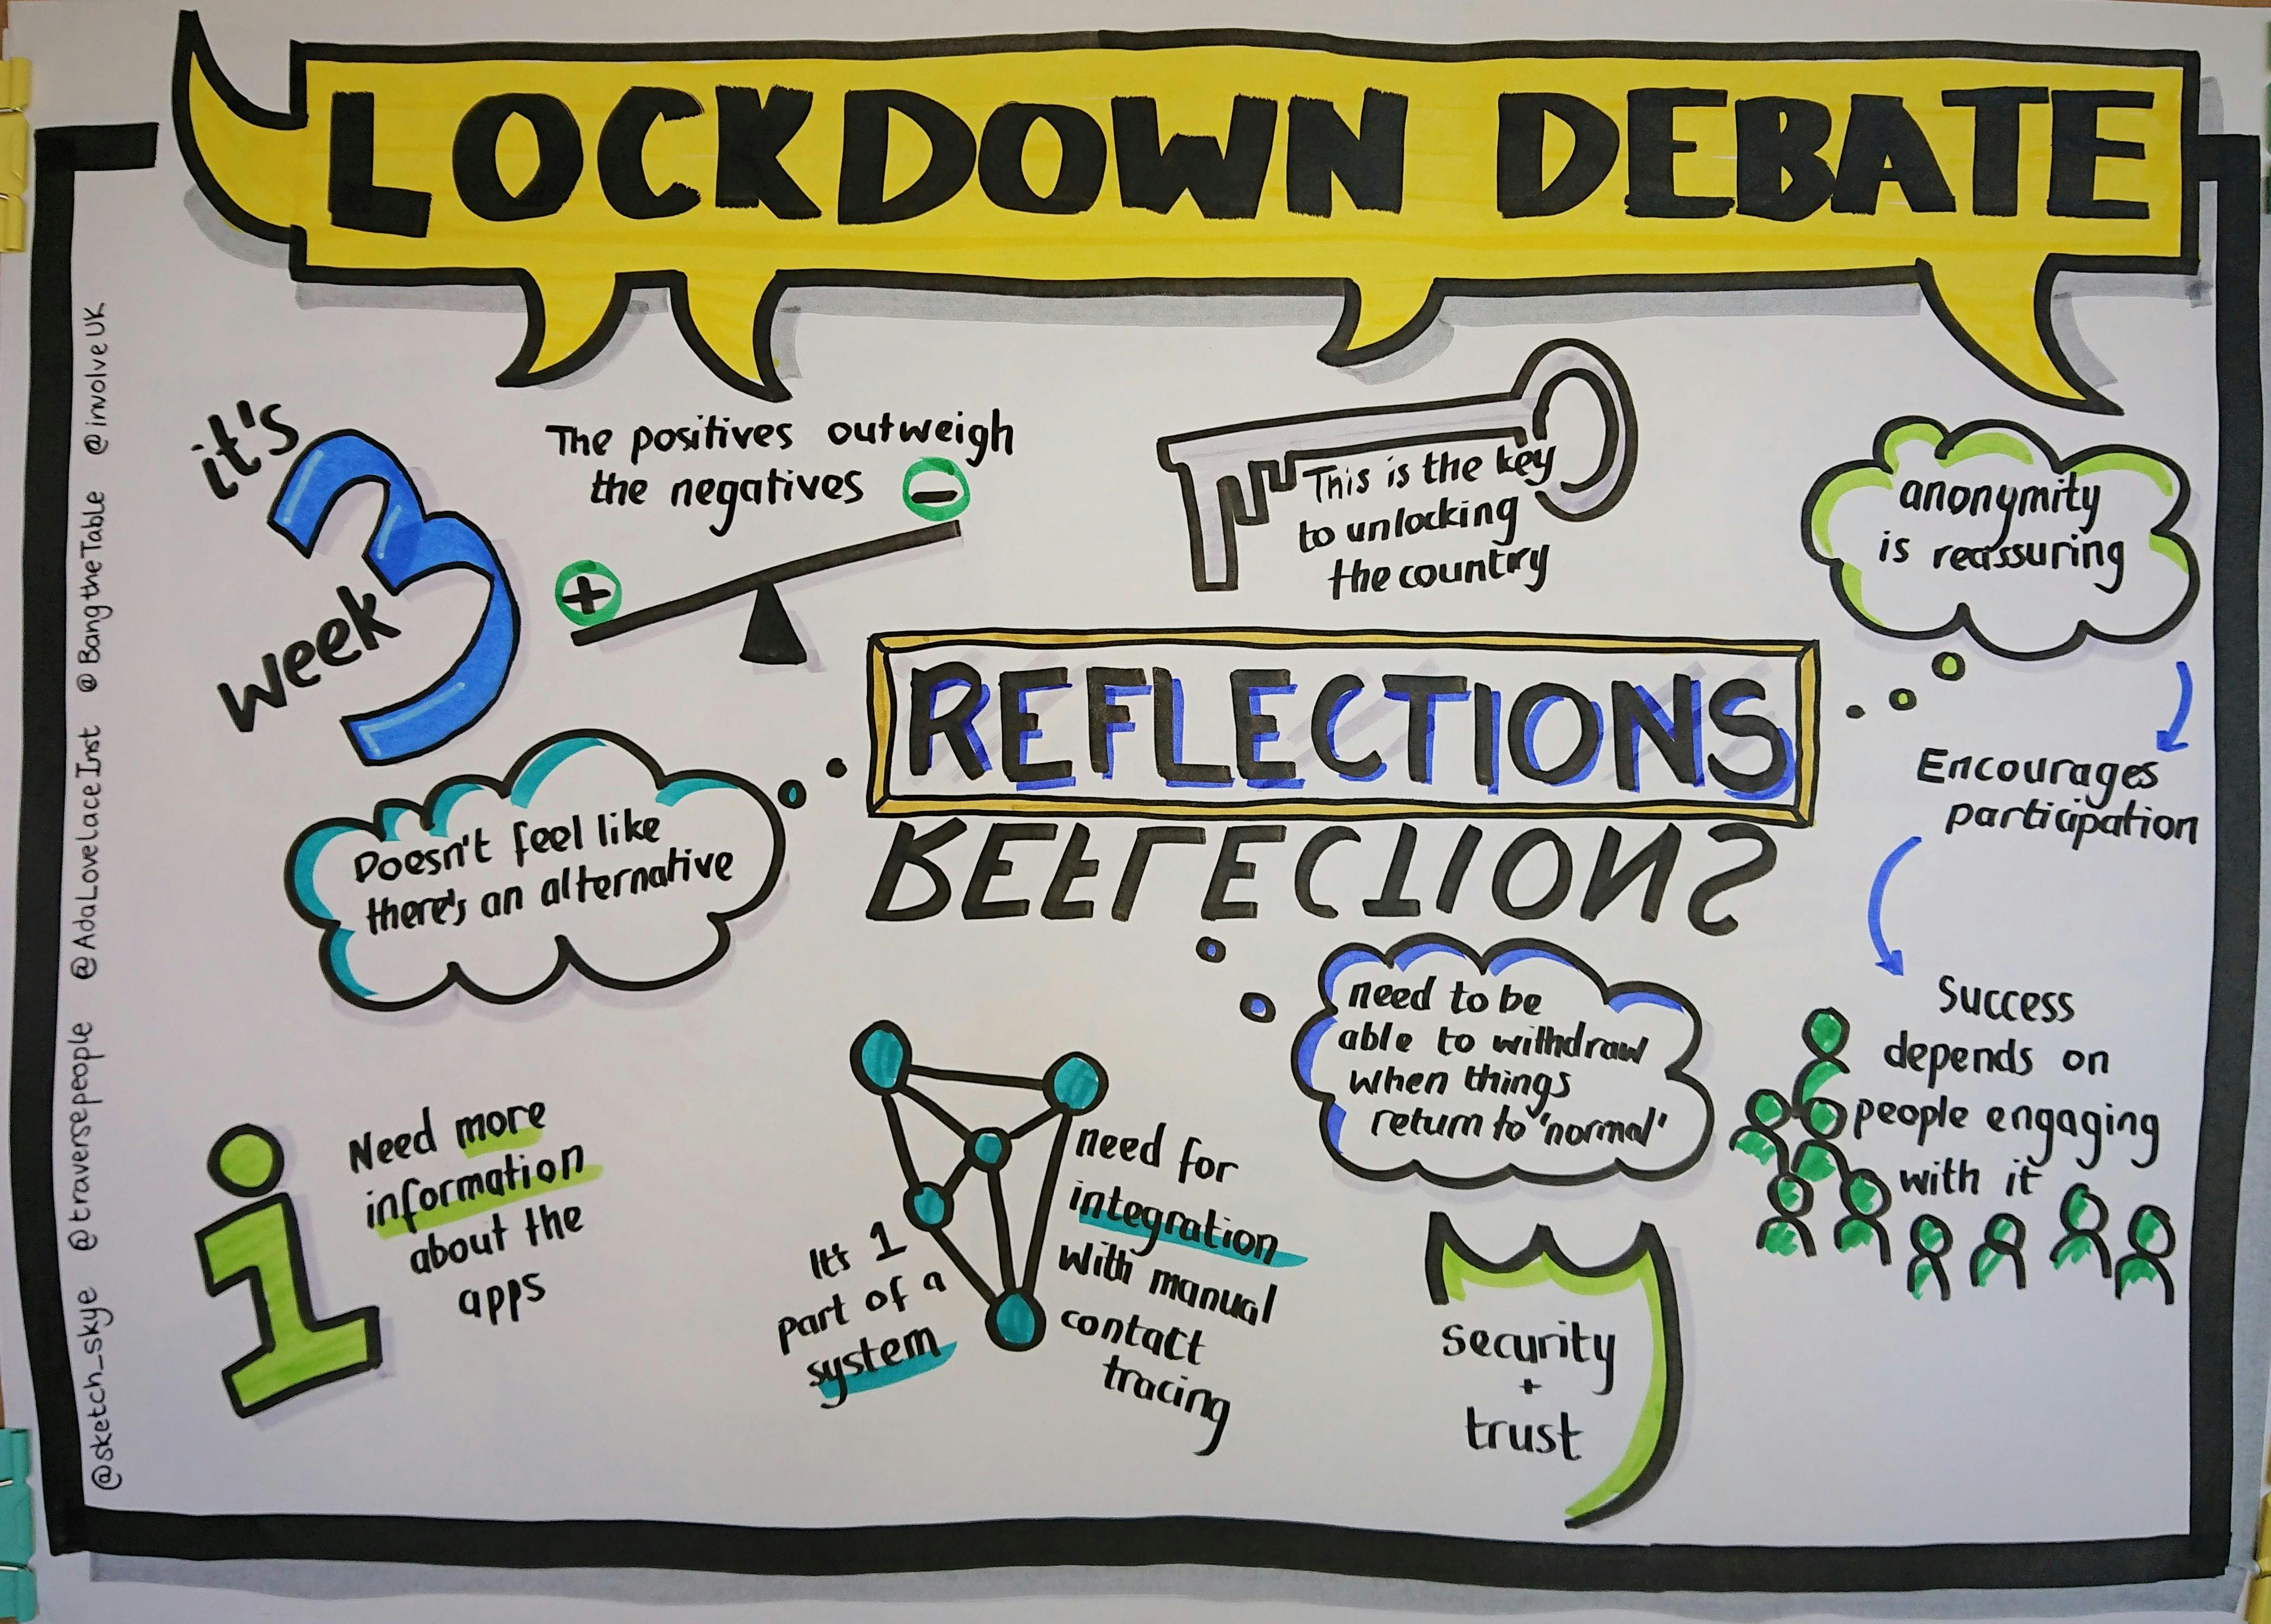 LOCKDOWN DEBATE
it's
week
3
The positives outweigh
the negatives
−
+
This is the key
to unlocking
the country
anonymity
is reassuring
Encourages
participation
Success
depends on
people engaging
with it
REFLECTIONS
REFLECTIONS
Doesn't feel like
there's an alternative
need to be
able to withdraw
when things
return to 'normal'
i
Need more
information
about the
apps
It's 1
part of a
system
need for
integration
with manual
contact
tracing
security
+
trust
@sketch_skye @traversepeople @AdaLovelaceInst @BangtheTable @involveUK